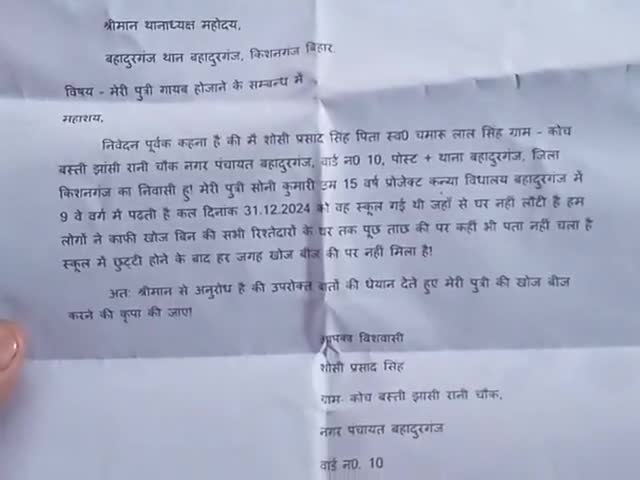 श्रीमान थानाध्यक्ष महोदय,
बहादुरगंज थान बहादुरगंज, किशनगंज बिहार
विषय - मेरी पुत्री गायब होजाने के सम्बन्ध में
महाशय,
निवेदन पूर्वक कहना है की मै शोसी प्रसाद सिंह पिता स्व0 चमारू लाल सिंह ग्राम - कोच
बस्ती झांसी रानी चौक नगर पंचायत बहादुरगंज, वार्ड न0 10, पोस्ट + थाना बहादुरगंज, जिला
किशनगंज का निवासी हु! मेरी पुत्री सोनी कुमारी उम 15 वर्ष प्रोजेक्ट कन्या विधालय बहादुरगंज में
9 वे वर्ग मे पढती है कल दिनाक 31.12.2024 को वह स्कूल गई थी जहाँ से घर नही लौटी है हम
लोगों ने काफी खोज बिन की सभी रिश्तेदारों के घर तक पूछ ताछ की पर कहीं भी पता नहीं चला है
स्कूल मे छुट्टी होने के बाद हर जगह खोज बीज की पर नहीं मिला है!
अतः श्रीमान से अनुरोध है की उपरोक्त बातों की धेयान देते हुए मेरी पुत्री की खोज बीज
करने की कृपा की जाए!
आपका विशवासी
शोसी प्रसाद सिंह
ग्राम- कोच बस्ती झासी रानी चौक,
नगर पंचायत बहादुरगंज
वार्ड न0. 10